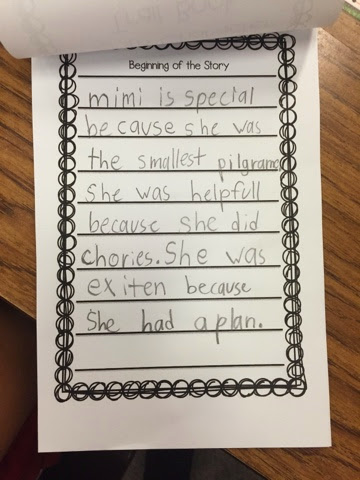 Beginning of the Story
mimi is special
because she was
the smallest pilgrame
she was helpfull
because she did
chories. She was
exiten because
She had a plan.